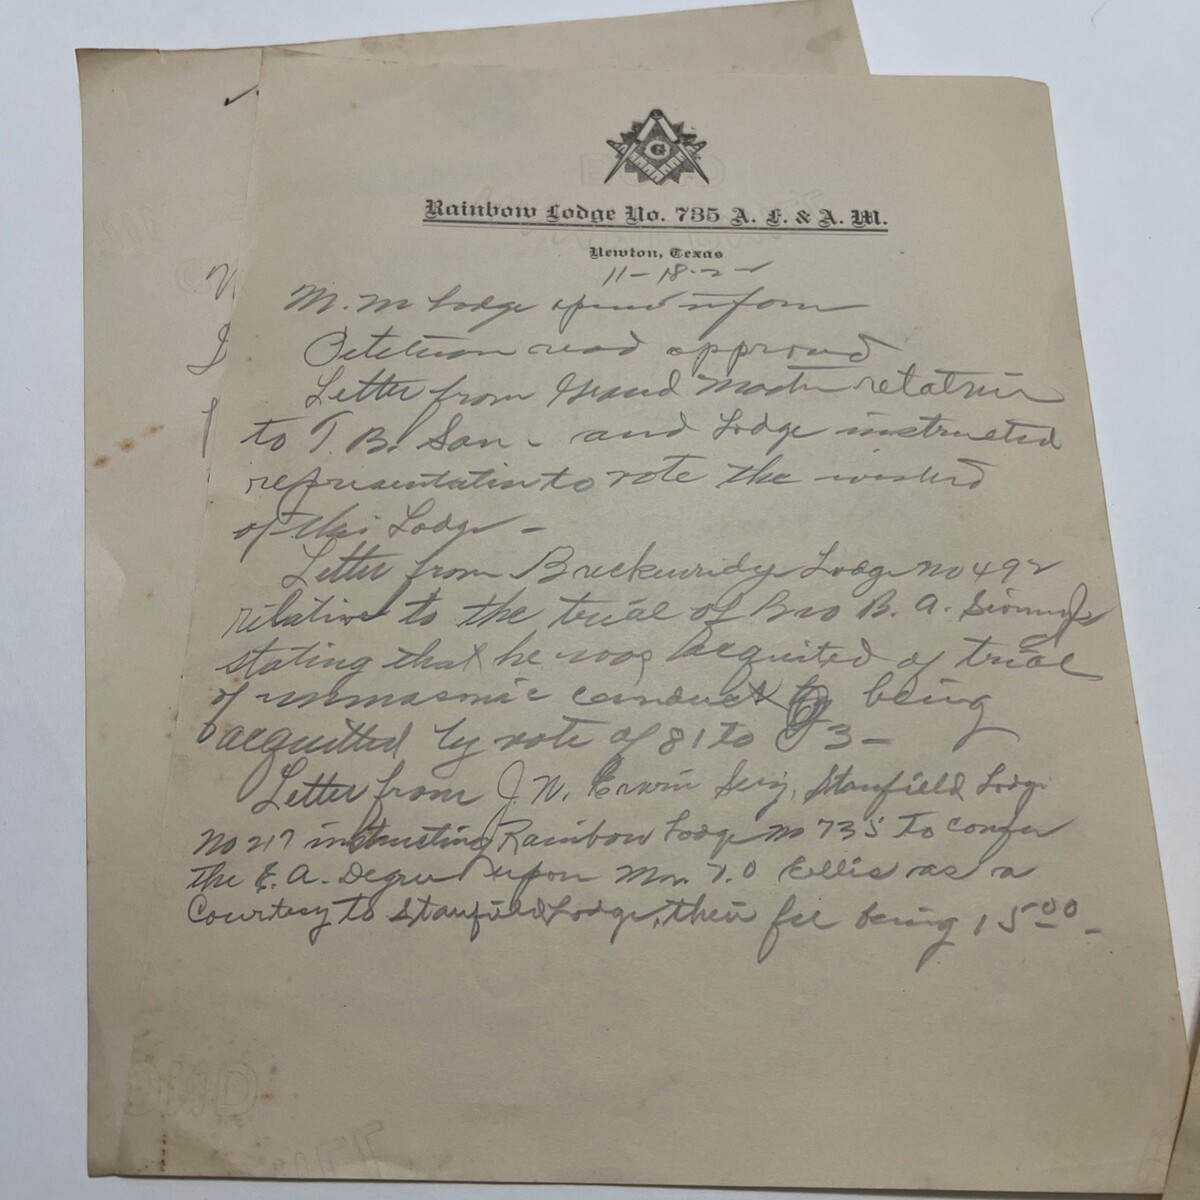 G
Rainbow Lodge No. 735 A. F. & A. M.
Newton, Texas
11-18-2-
M. M Lodge opened in form
Petetion read approved
Letter from Grand Master relative
to T. B. San - and Lodge instructed
representative to vote the wished
of this Lodge -
Letter from Breckenridge Lodge no 492
relative to the trial of Bro B. A.
stating that he was acquited of trial
of unmasonic conduct by being
acquitted by vote of 81 to 3 -
Letter from J. W. Erwin Secy, Stanfield Lodge
No 217 instructing Rainbow Lodge no 735 to confer
the E. A. Degree upon Mr. Ellis as a
Courtesy to Stanfield Lodge, their fee being 15.00 -